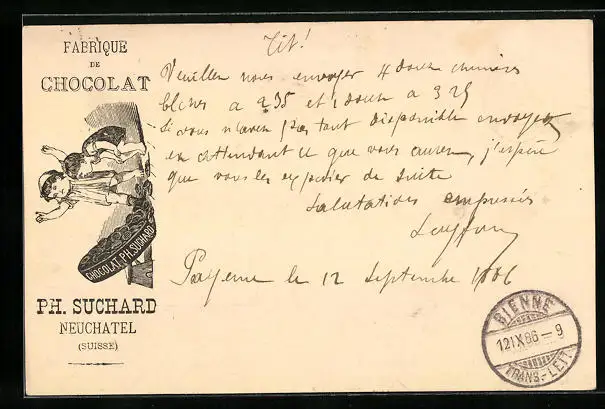 FABRIQUE
DE
CHOCOLAT
CHOCOLAT PH. SUCHARD
PH. SUCHARD
NEUCHATEL
(SUISSE)
Tit!
Veuillez nous envoyer 4 douz chemises
bleues a 235 et 1 douz a 325
Si vous n'avez pas tout disponible envoyez
en attendant ce que vous aurez, j'espère
que vous les expedier de suite
Salutations empressées
Payerne le 12 Septembre 1886
BIENNE
12 IX 86 - 9
TRANS.-LETT.